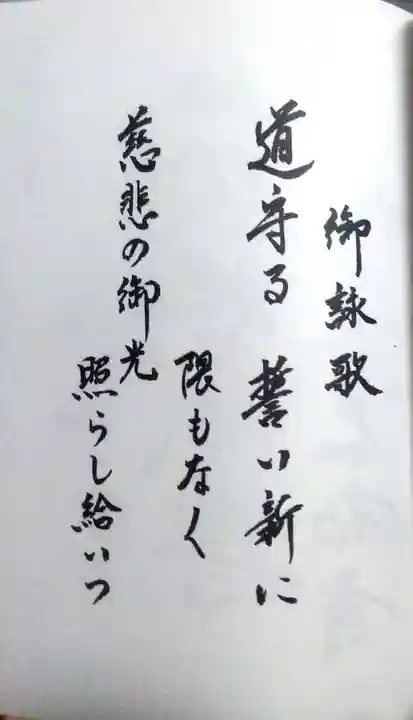 御詠歌
道守る 誓い新に
隈もなく
慈悲の御光
照らし給いつ